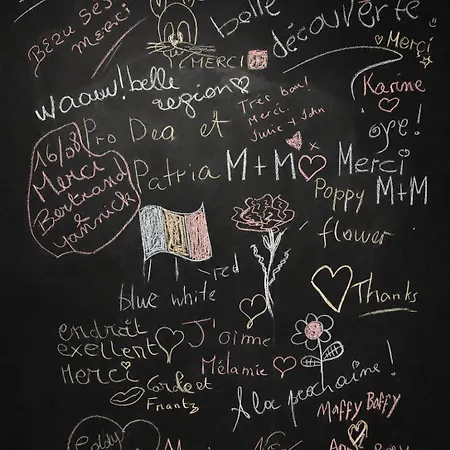 BEZU SES
MERCI
MERCI
belle
découverte
Merci
waouw! belle
region
Très bon!
Merci.
Karine
16/08
Merci
Bertrand
&
Yannick
Pro Deo et
Patria
M+M
Merci
M+M
Poppy
flower
red
blue white
Thanks
endroit
exellent
Merci
J'aime
Mélamie
Carole et
Frantz
A la prochaine!
Maffy Baffy